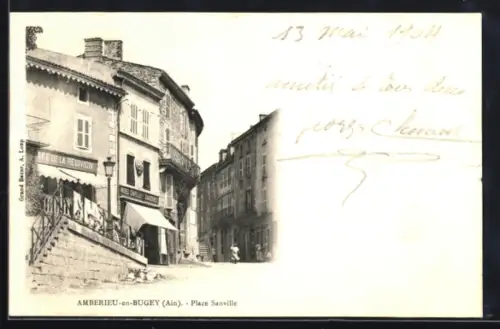 13 mai 1904
amitié à tous deux
É DE LA RÉUNION
Grand Bazar, A. Loup
AMBERIEU-en-BUGEY (Ain). - Place Sanville